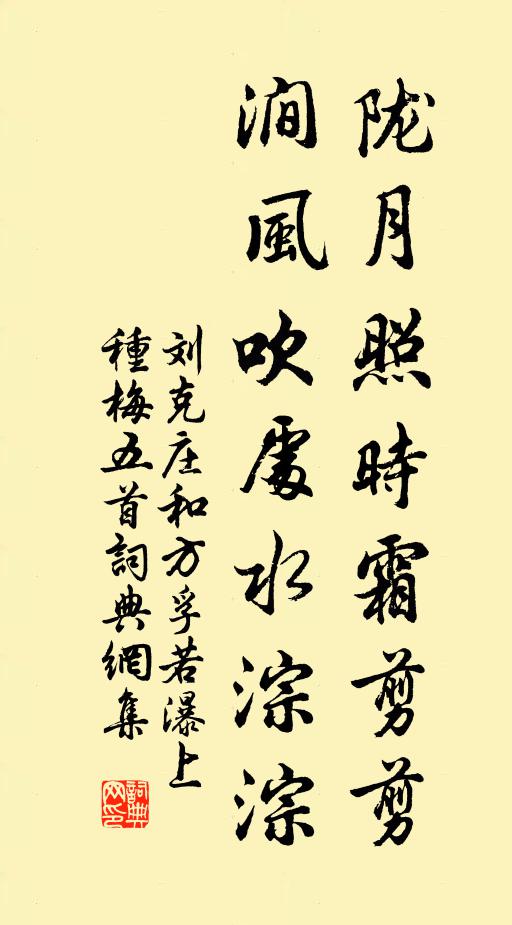 陇月照時霜剪剪
澗風吹處水淙淙
刘克庄和方孚若瀑上
種梅五首詞典網集
詞典网印